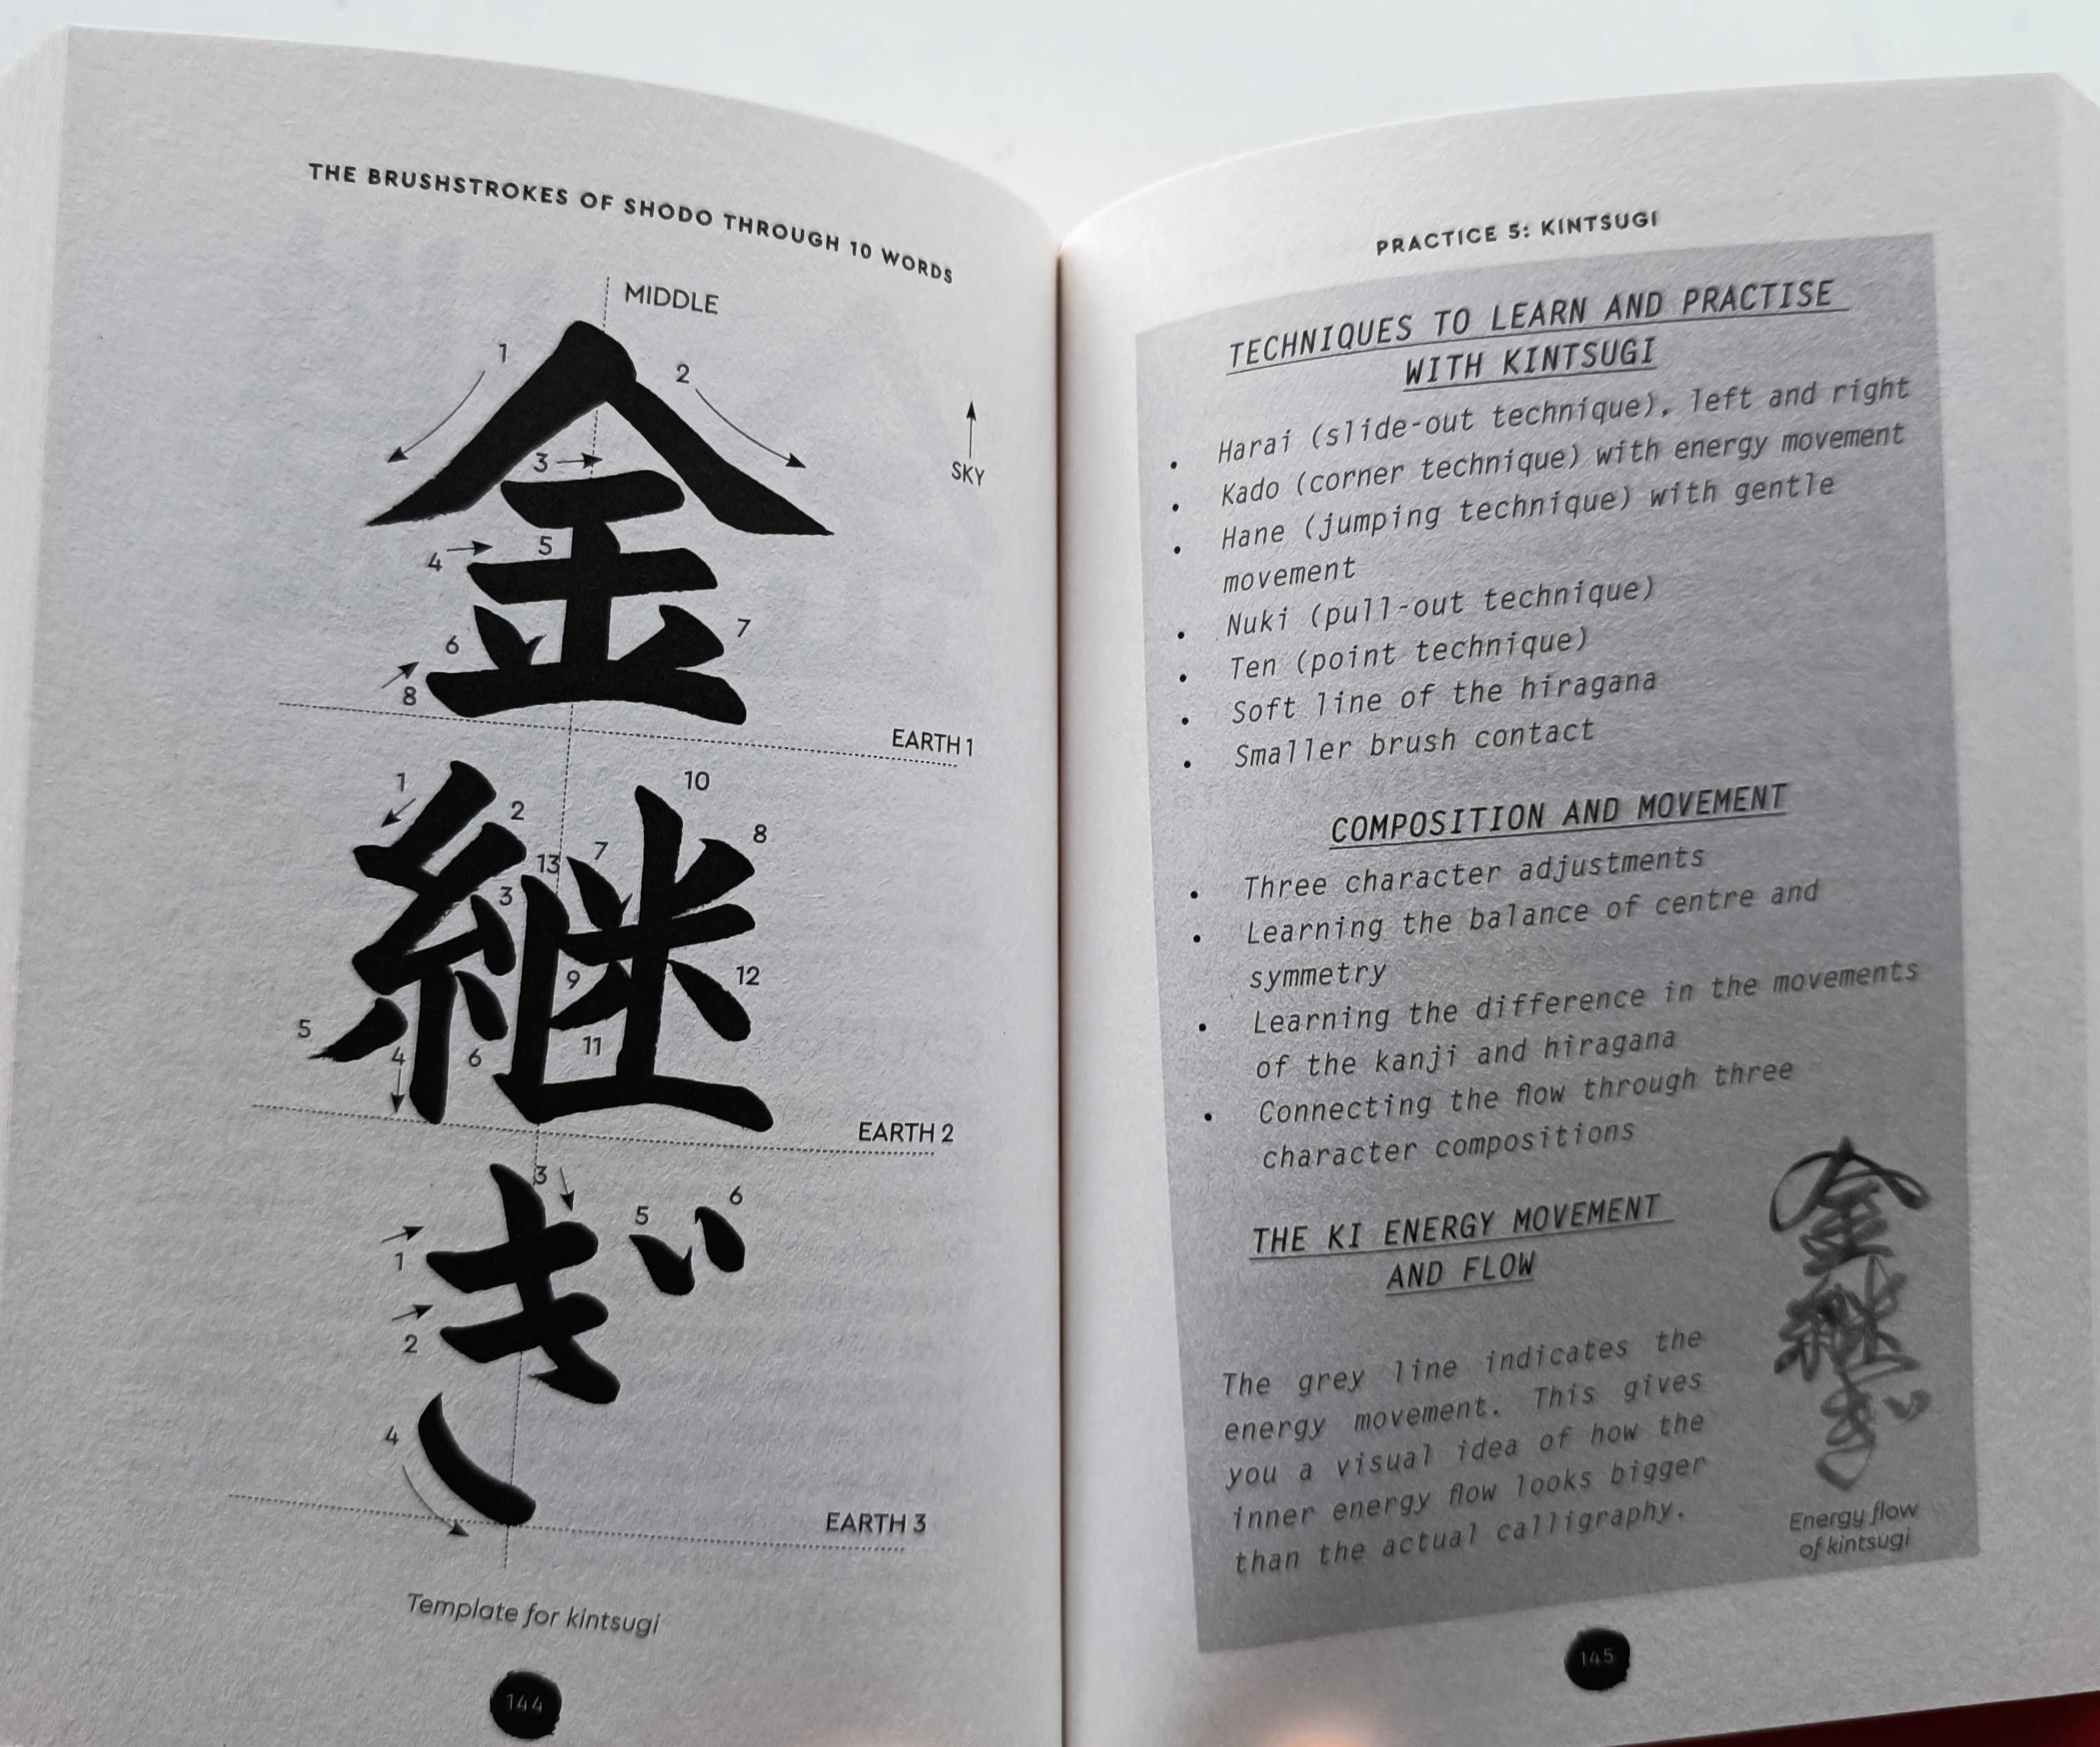 THE BRUSHSTROKES OF SHODO THROUGH 10 WORDS
MIDDLE
1
2
SKY
3
金
4
5
6
7
8
EARTH 1
1
2
10
8
13
7
3
継
9
12
5
4
6
11
EARTH 2
3
5
6
1
ぎ
2
4
EARTH 3
Template for kintsugi
144
PRACTICE 5: KINTSUGI
TECHNIQUES TO LEARN AND PRACTISE
WITH KINTSUGI
• Harai (slide-out technique), left and right
• Kado (corner technique) with energy movement
• Hane (jumping technique) with gentle
movement
• Nuki (pull-out technique)
• Ten (point technique)
• Soft line of the hiragana
• Smaller brush contact
COMPOSITION AND MOVEMENT
• Three character adjustments
• Learning the balance of centre and
symmetry
• Learning the difference in the movements
of the kanji and hiragana
• Connecting the flow through three
character compositions
THE KI ENERGY MOVEMENT
AND FLOW
The grey line indicates the
energy movement. This gives
you a visual idea of how the
inner energy flow looks bigger
than the actual calligraphy.
金
継
ぎ
Energy flow
of kintsugi
145